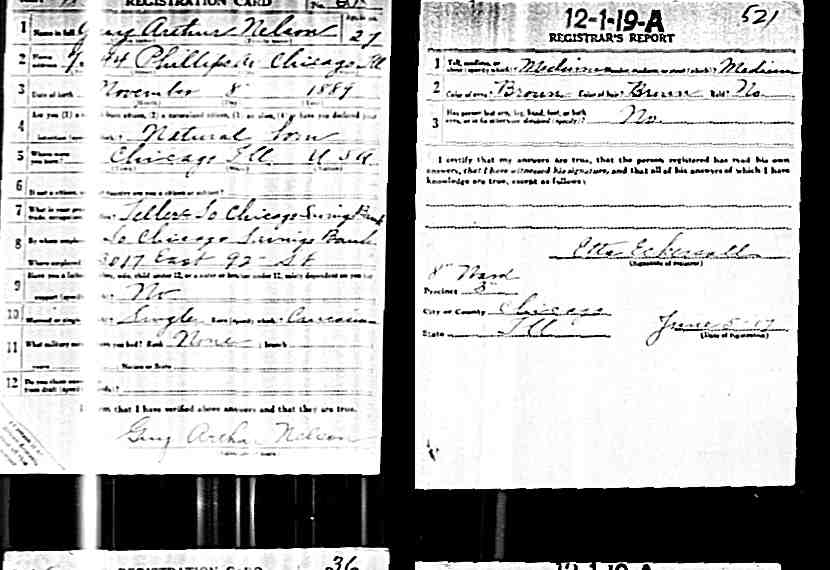 REGISTRATION CARD No.
1 Name in full Guy Arthur Nelson 27
2 Home address 44 Phillips Av Chicago Ill
3 Date of birth November 8 1889
4 Are you (1) a
Natural born
5 Where were you born? Chicago Ill. U S A
6 If not a citizen, of what country are you a citizen or subject?
7 Teller So Chicago Savings Bank
8 By whom employed So Chicago Savings Bank
Where employed 3017 East 92- St
9 Have you a father
No
10 Married or single Single Race (specify which)? Caucasian
11 What military service have you had? Rank None branch
years Nation or State
12 Do you claim exemption from draft (specify grounds)?
I affirm that I have verified above answers and that they are true.
Guy Arthur Nelson
REGISTRATION CARD 36
521
12-1-19-A
REGISTRAR'S REPORT
1 Tall, medium, or short (specify which)? Medium Slender, medium, or stout (which)? Medium
2 Color of eyes? Brown Color of hair? Brown Bald? No
3 Has person lost arm, leg, hand, foot, or both eyes, or is he otherwise disabled (specify)? No
I certify that my answers are true, that the person registered has read his own
answers, that I have witnessed his signature, and that all of his answers of which I have
knowledge are true, except as follows:
Etta Eckersall
(Signature of registrar)
8" Ward
Precinct
City or County Chicago
State Ill
June 5-17
(Date of registration)
12-1-19-A